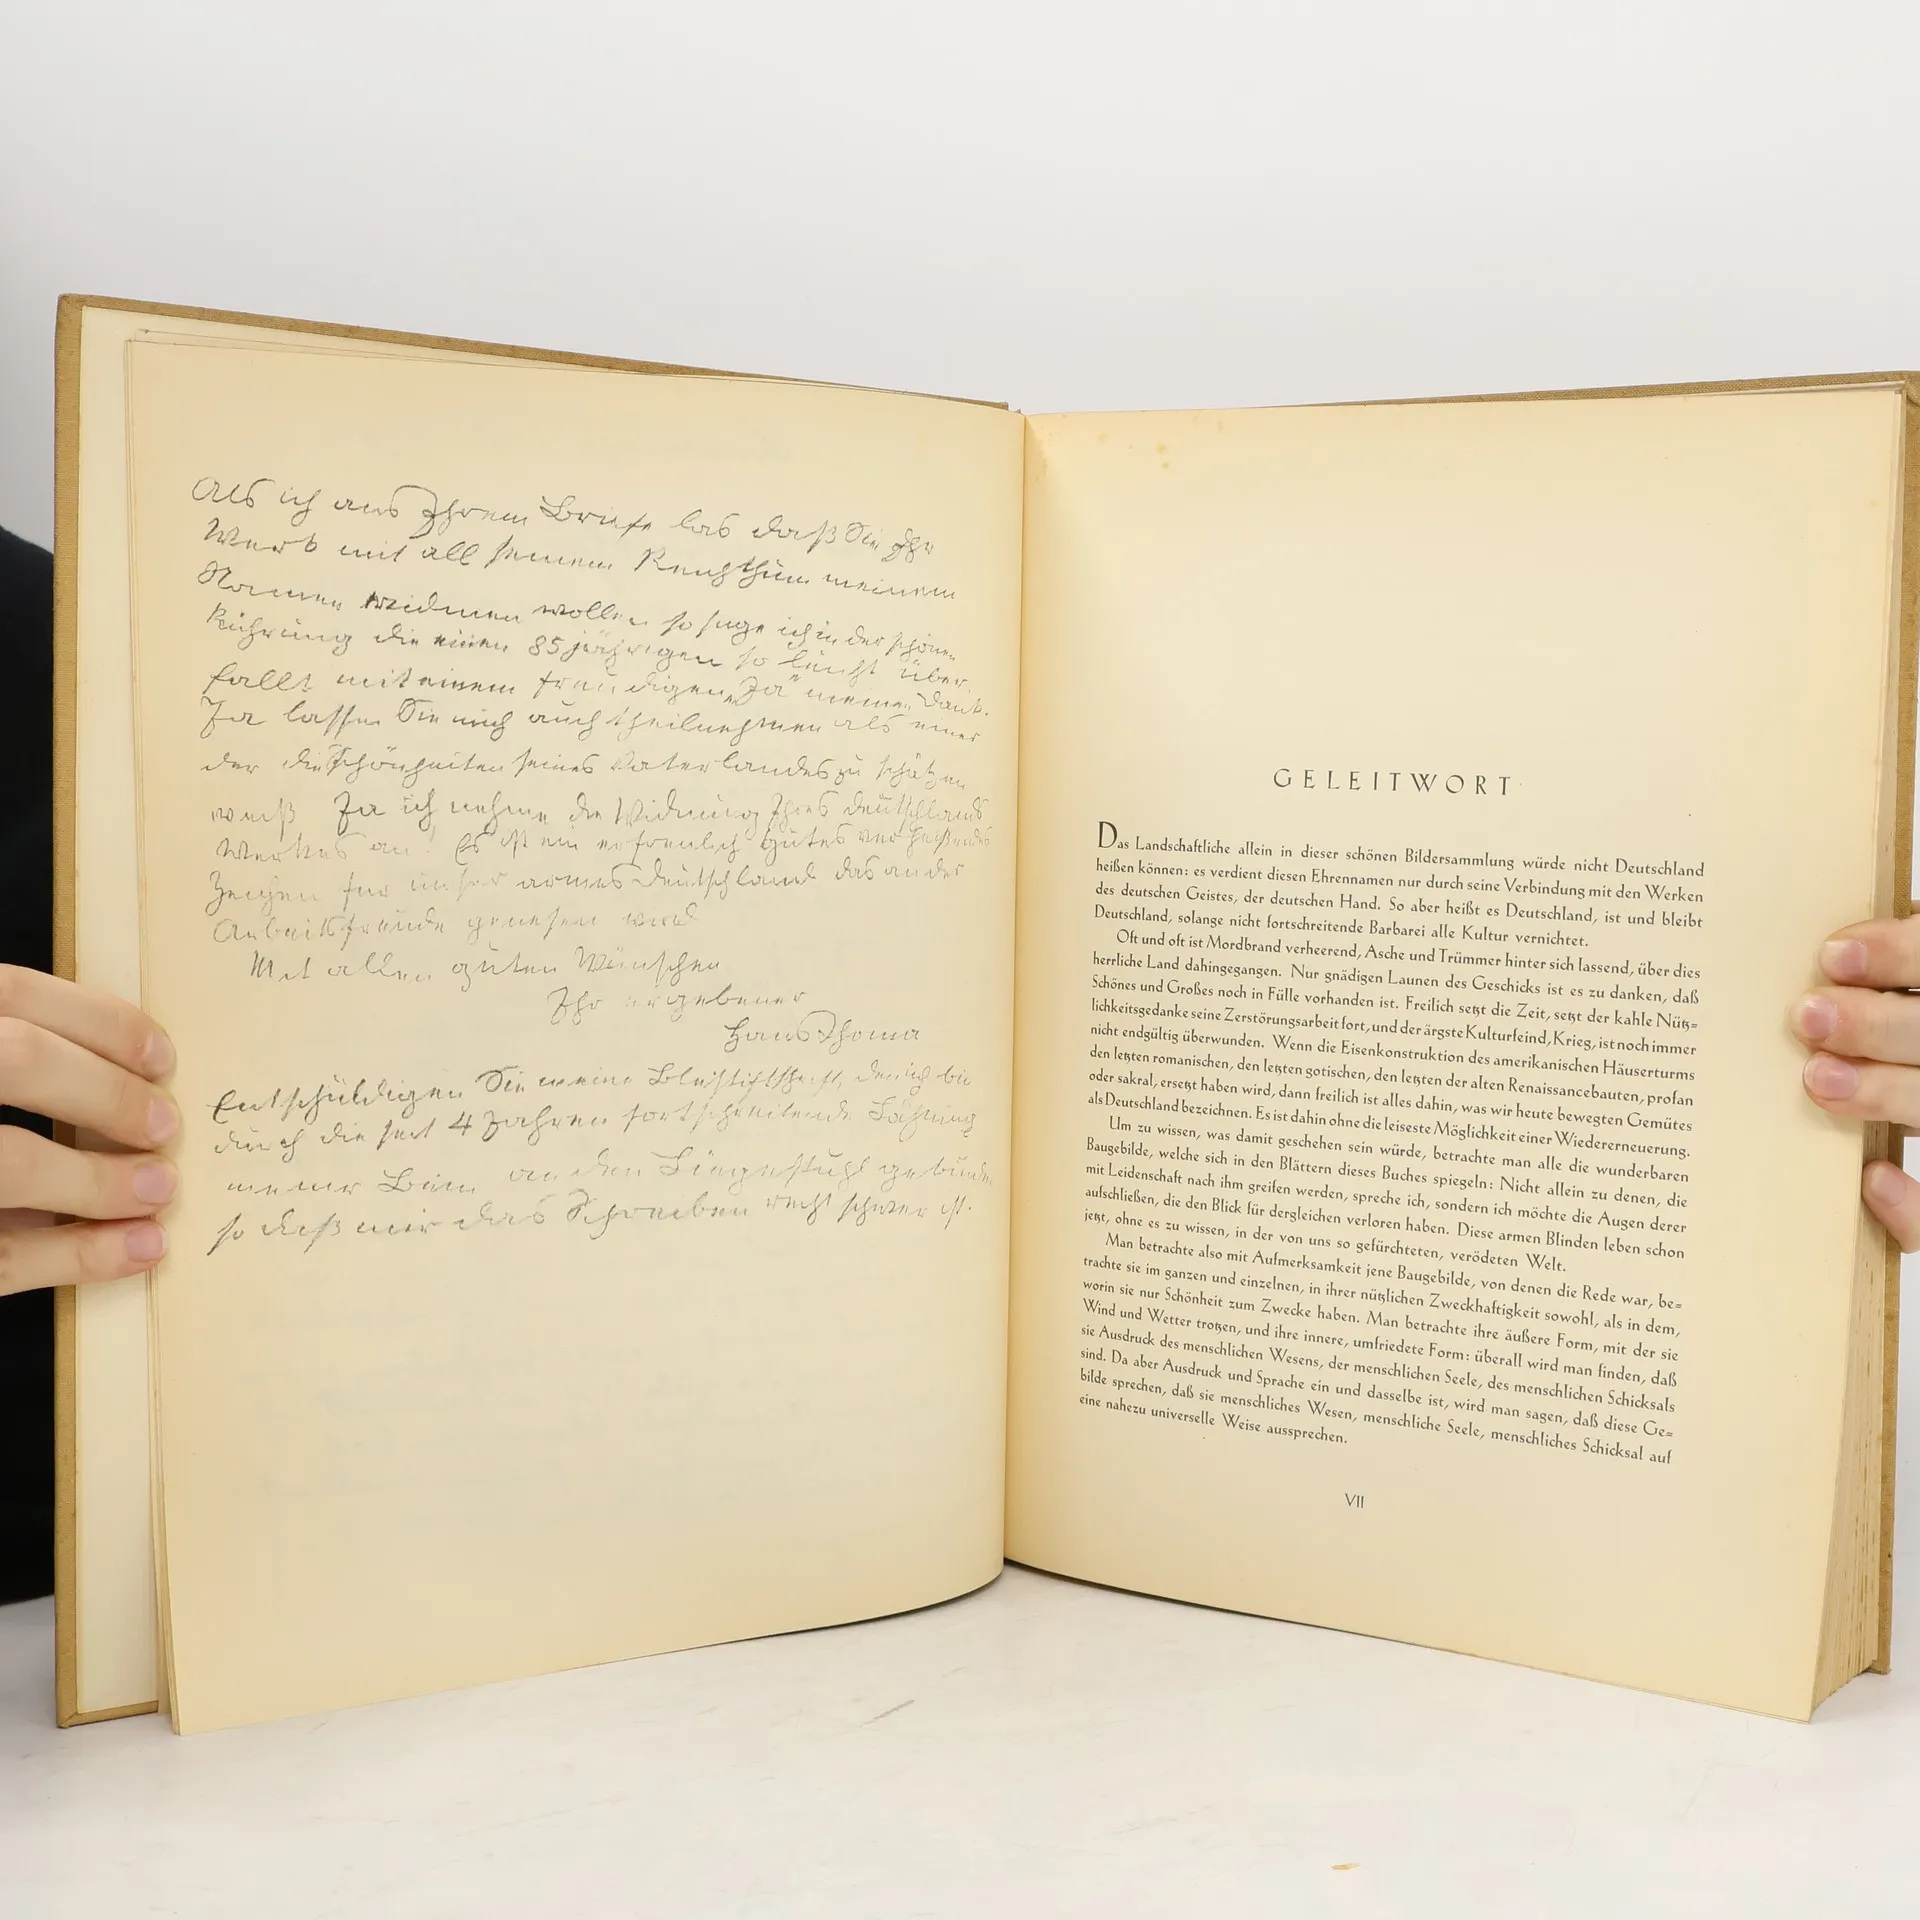 Als ich aus Ihrem Briefe las daß Sie Ihr
Werk mit all seinem Reichthum meinem
Namen widmen wollen so sage ich in der schönen
Rührung die einen 85 jährigen so leicht über
fällt mit einem freudigen „Ja“ meinen Dank.
Ja lassen Sie mich auch theilnehmen als einer
der die Schönheiten seines Vaterlandes zu schätzen
weiß Ja ich nehme die Widmung Ihres Deutschlands
Werkes an! Es ist ein erfreulich gutes verheißendes
Zeichen für unser armes Deutschland das an der
Arbeitsfreude genesen wird
Mit allen guten Wünschen
Ihr ergebener
Hans Thoma
Entschuldigen Sie meine Bleistiftschrift, denn ich bin
durch die seit 4 Jahren fortschreitende Lähmung
meiner Beine an den Liegestuhl gebunden
so daß mir das Schreiben recht schwer ist.
GELEITWORT
Das Landschaftliche allein in dieser schönen Bildersammlung würde nicht Deutschland
heißen können: es verdient diesen Ehrennamen nur durch seine Verbindung mit den Werken
des deutschen Geistes, der deutschen Hand. So aber heißt es Deutschland, ist und bleibt
Deutschland, solange nicht fortschreitende Barbarei alle Kultur vernichtet.
Oft und oft ist Mordbrand verheerend, Asche und Trümmer hinter sich lassend, über dies
herrliche Land dahingegangen. Nur gnädigen Launen des Geschicks ist es zu danken, daß
Schönes und Großes noch in Fülle vorhanden ist. Freilich setzt die Zeit, setzt der kahle Nütz=
lichkeitsgedanke seine Zerstörungsarbeit fort, und der ärgste Kulturfeind, Krieg, ist noch immer
nicht endgültig überwunden. Wenn die Eisenkonstruktion des amerikanischen Häuserturms
den letzten romanischen, den letzten gotischen, den letzten der alten Renaissancebauten, profan
oder sakral, ersetzt haben wird, dann freilich ist alles dahin, was wir heute bewegten Gemütes
als Deutschland bezeichnen. Es ist dahin ohne die leiseste Möglichkeit einer Wiedererneuerung.
Um zu wissen, was damit geschehen sein würde, betrachte man alle die wunderbaren
Baugebilde, welche sich in den Blättern dieses Buches spiegeln: Nicht allein zu denen, die
mit Leidenschaft nach ihm greifen werden, spreche ich, sondern ich möchte die Augen derer
aufschließen, die den Blick für dergleichen verloren haben. Diese armen Blinden leben schon
jetzt, ohne es zu wissen, in der von uns so gefürchteten, verödeten Welt.
Man betrachte also mit Aufmerksamkeit jene Baugebilde, von denen die Rede war, be=
trachte sie im ganzen und einzelnen, in ihrer nützlichen Zweckhaftigkeit sowohl, als in dem,
worin sie nur Schönheit zum Zwecke haben. Man betrachte ihre äußere Form, mit der sie
Wind und Wetter trotzen, und ihre innere, umfriedete Form: überall wird man finden, daß
sie Ausdruck des menschlichen Wesens, der menschlichen Seele, des menschlichen Schicksals
sind. Da aber Ausdruck und Sprache ein und dasselbe ist, wird man sagen, daß diese Ge=
bilde sprechen, daß sie menschliches Wesen, menschliche Seele, menschliches Schicksal auf
eine nahezu universelle Weise aussprechen.
VII